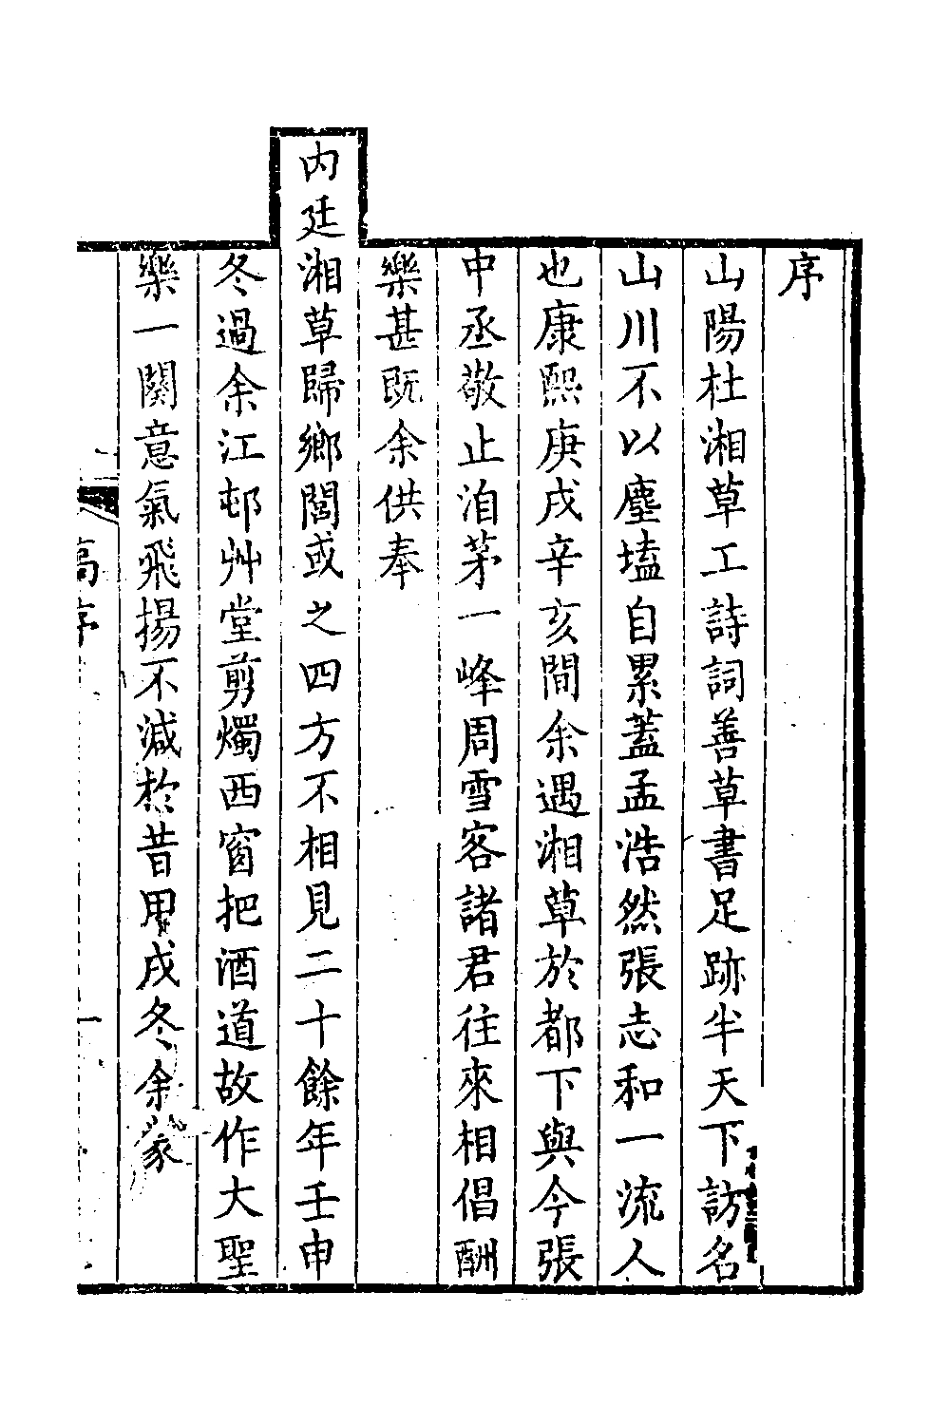 序
山陽杜湘草工詩詞善草書足跡半天下訪名
山川不以塵壒自累蓋孟浩然張志和一流人
也康熙庚戌辛亥間余遇湘草於都下與今張
中丞敬止洎茅一峰周雪客諸君往來相倡酬
樂甚既余供奉
内廷湘草歸鄉閭或之四方不相見二十餘年壬申
冬過余江邨艸堂剪燭西窗把酒道故作大聖
樂一闋意氣飛揚不減於昔甲戌冬余蒙
序
一